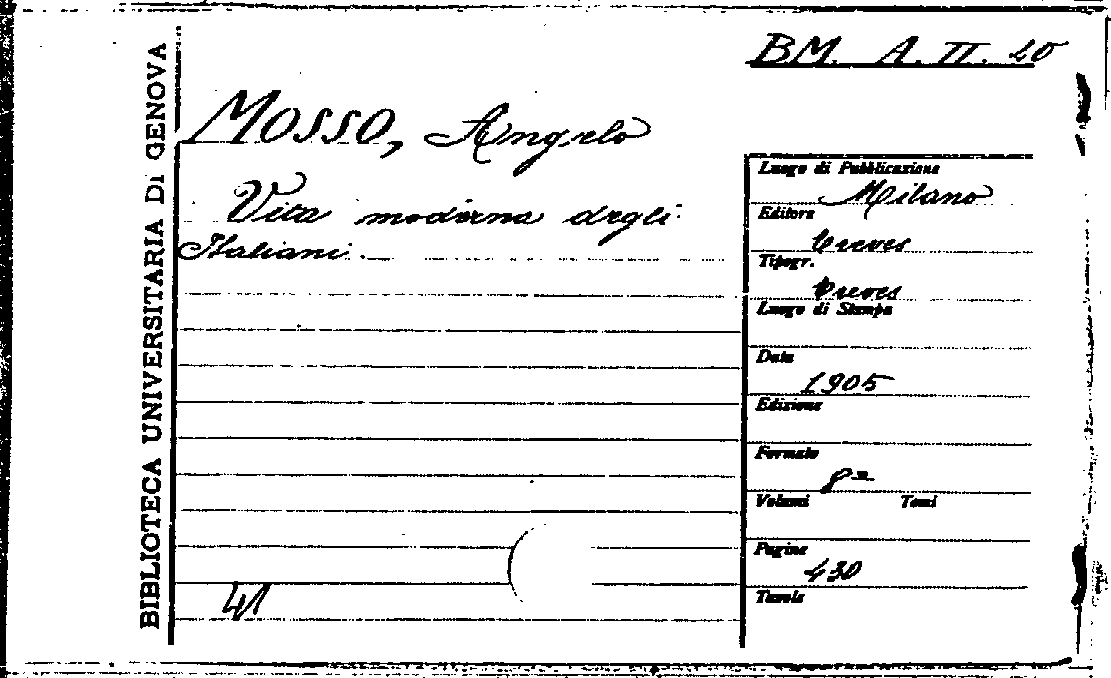 BIBLIOTECA UNIVERSITARIA DI GENOVA
BM. A. II. 40
MOSSO, Angelo
Vita moderna degli
Italiani.
41
Luogo di Pubblicazione
Milano
Editore
Treves
Tipogr.
Treves
Luogo di Stampa
Data
1905
Edizione
Formato
8º
Volumi Tomi
Pagine
430
Tavole